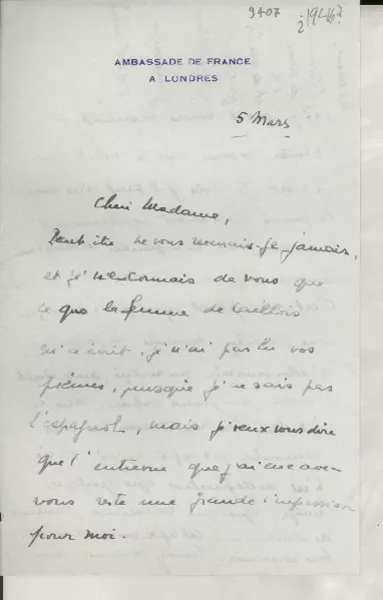 9407
1946?
AMBASSADE DE FRANCE
A LONDRES
5 Mars
Chère Madame,
Peut être ne vous verrais-je jamais,
et je ne connais de vous que
ce que la femme de Caillois
m'a écrit. je n'ai pas lu vos
poèmes, puisque je ne sais pas
l'espagnol, mais je veux vous dire
que l'entrevue que j'ai eue avec
vous reste une grande impression
pour moi.